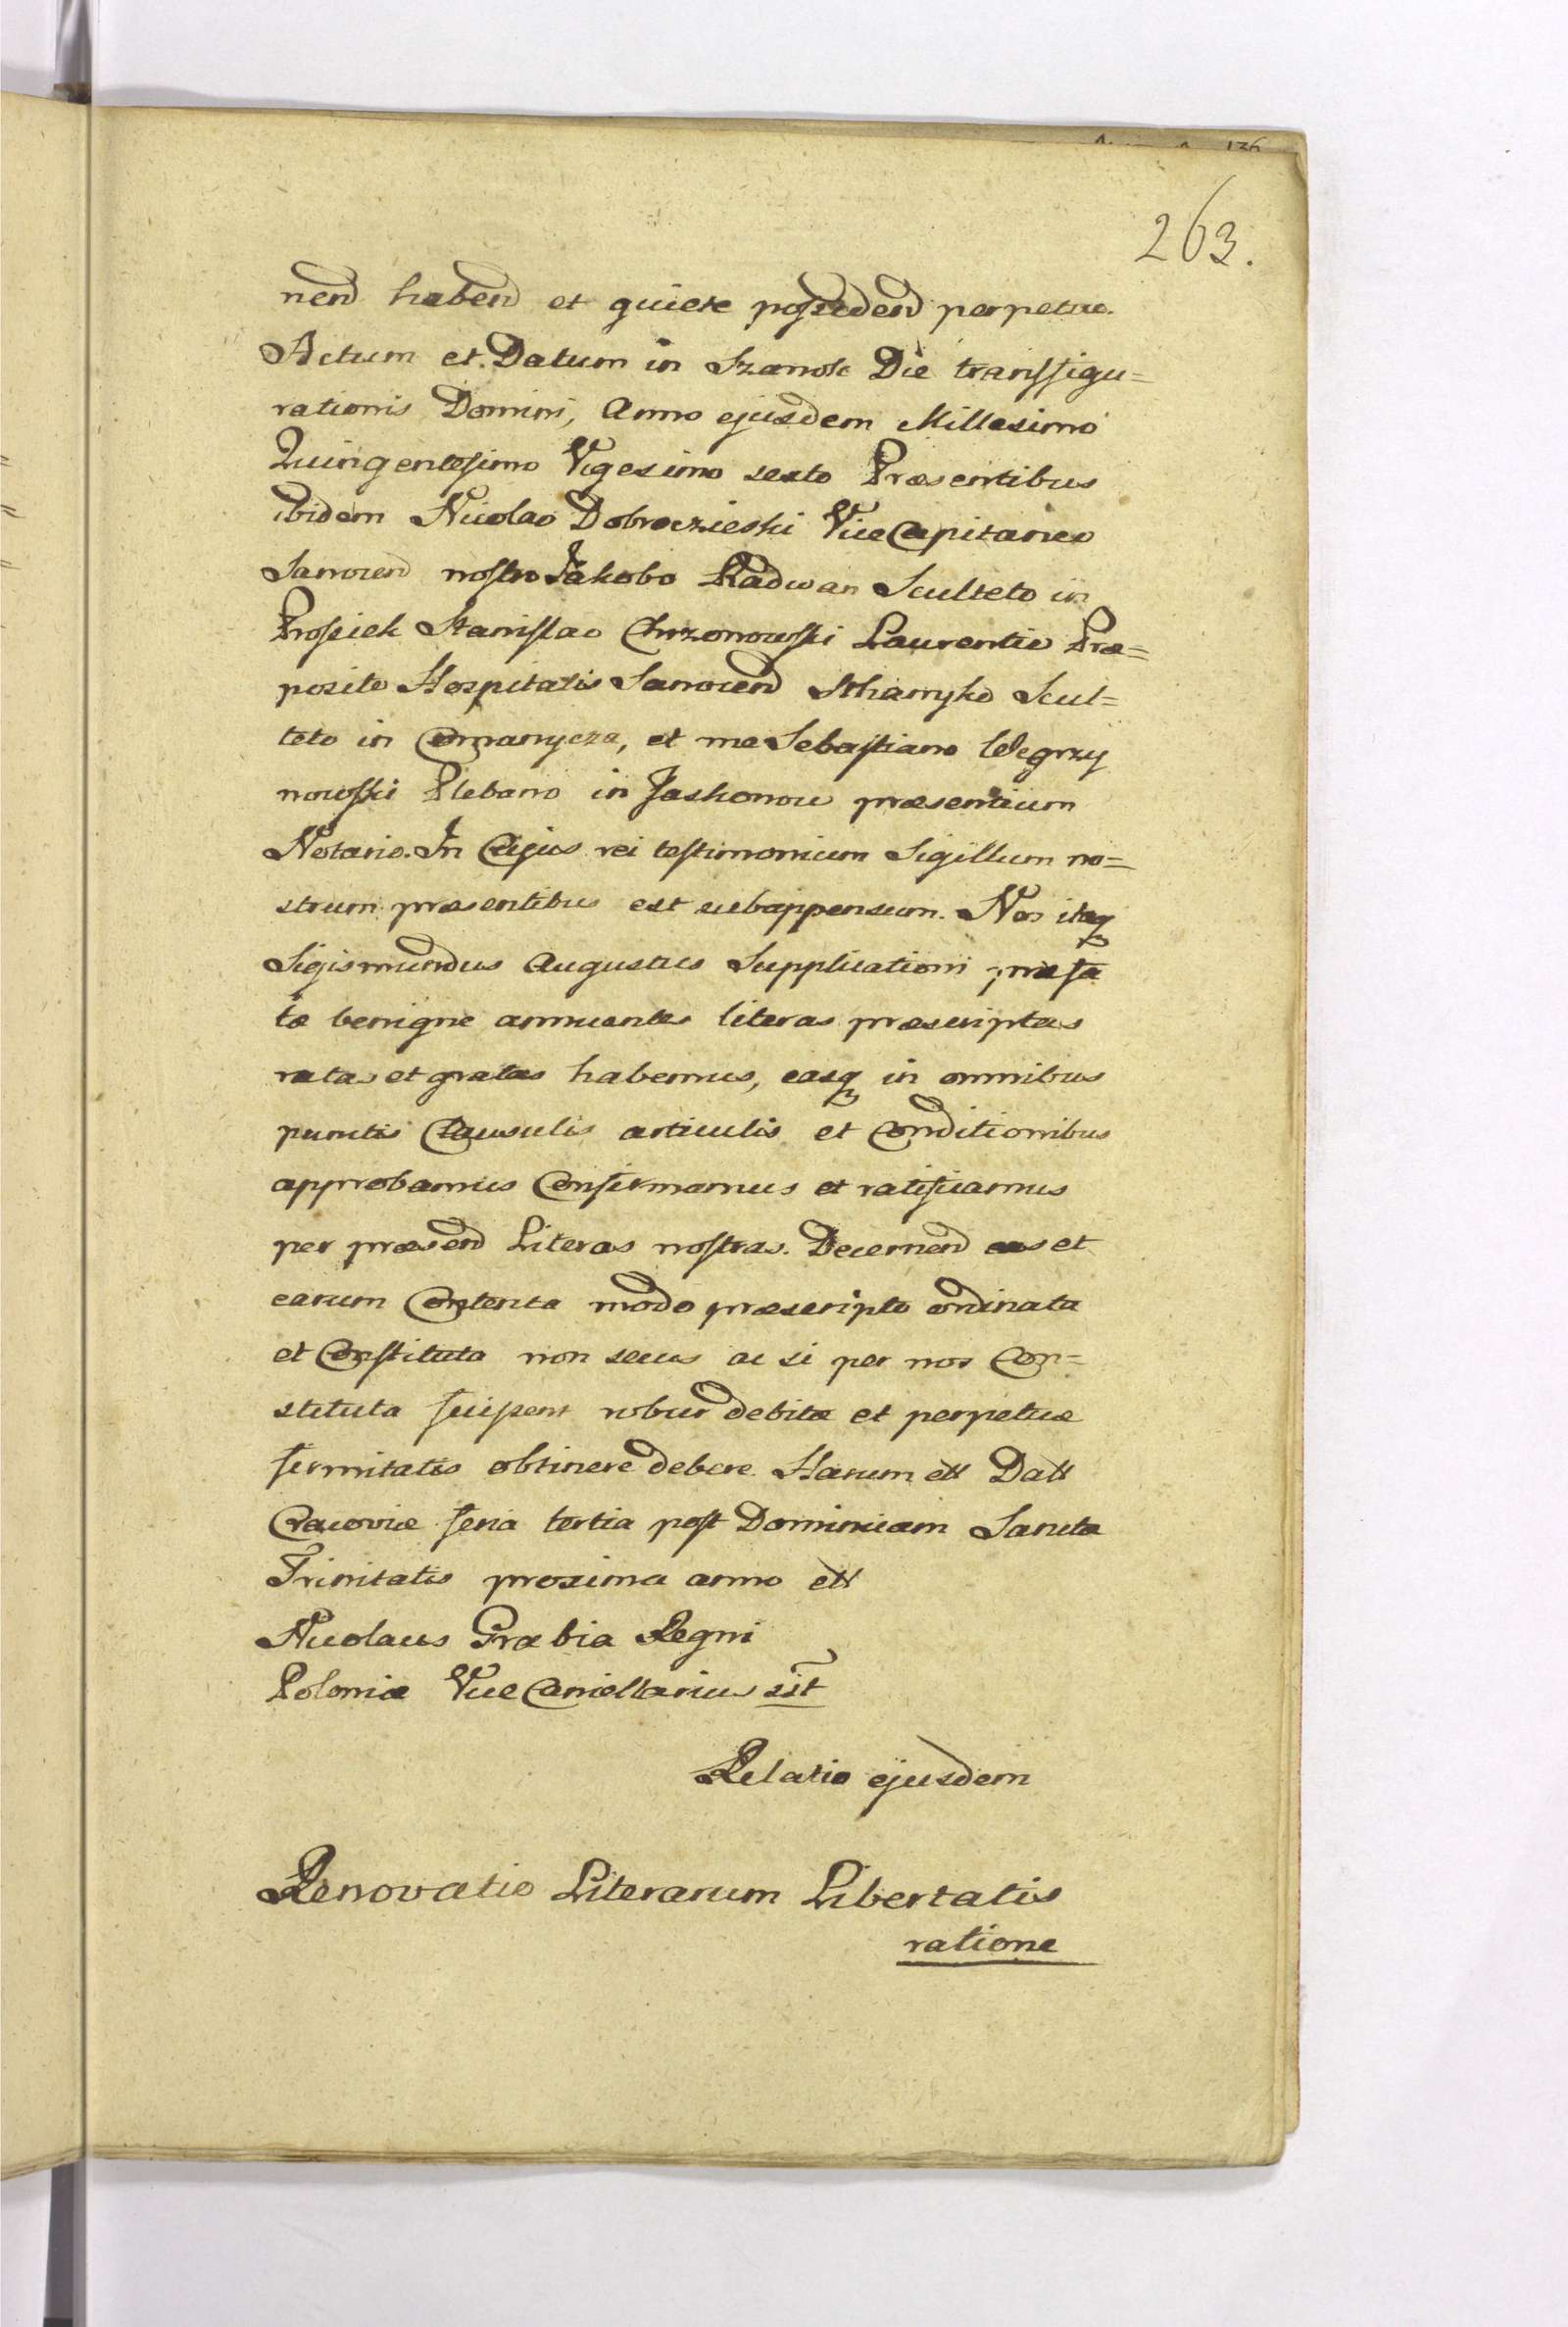 263.
nend habend et quiete possedend perpetue.
Actum et Datum in Szanok Die transfigu=
rationis Domini, Anno ejusdem Millesimo
Quingentesimo Vigesimo sexto Præsentibus
ibidem Nicolao Dobroczieski ViceCapitaneo
Sanocen nostro Jakobo Radwan Sculteto in
Prosiek Stanislao Chrzonowski Laurentio Præ=
posito Hospitalis Sanocen Sthanyko Scul=
teto in Comanycza, et me Sebastiano Wegrzy
nowski Plebano in Jaskonow præsentium
Notario. In Cujus rei testimonium Sigillum no=
strum præsentibus est subappensum. Nos itaq
Sigismundus Augustus Supplicationi præfa
tæ benigne annuentes literas præscriptas
ratas et gratas habemus, easq in omnibus
punctis Clausulis articulis et Conditionibus
approbamus Confirmamus et ratificamus
per præsend Literas nostras. Decernend eas et
earum Contenta modo præscripto ordinata
et Constituta non secus ac si per nos Con=
stituta fuissent robur debitæ et perpetuæ
firmitatis obtinere debere. Harum ett Datt
Cracoviæ feria tertia post Dominicam Sanctæ
Trinitatis proxima anno ett
Nicolaus Grabia Regni
Poloniæ ViceCancellarius sst
Relatio ejusdem
Renovatio Literarum Libertatis
ratione